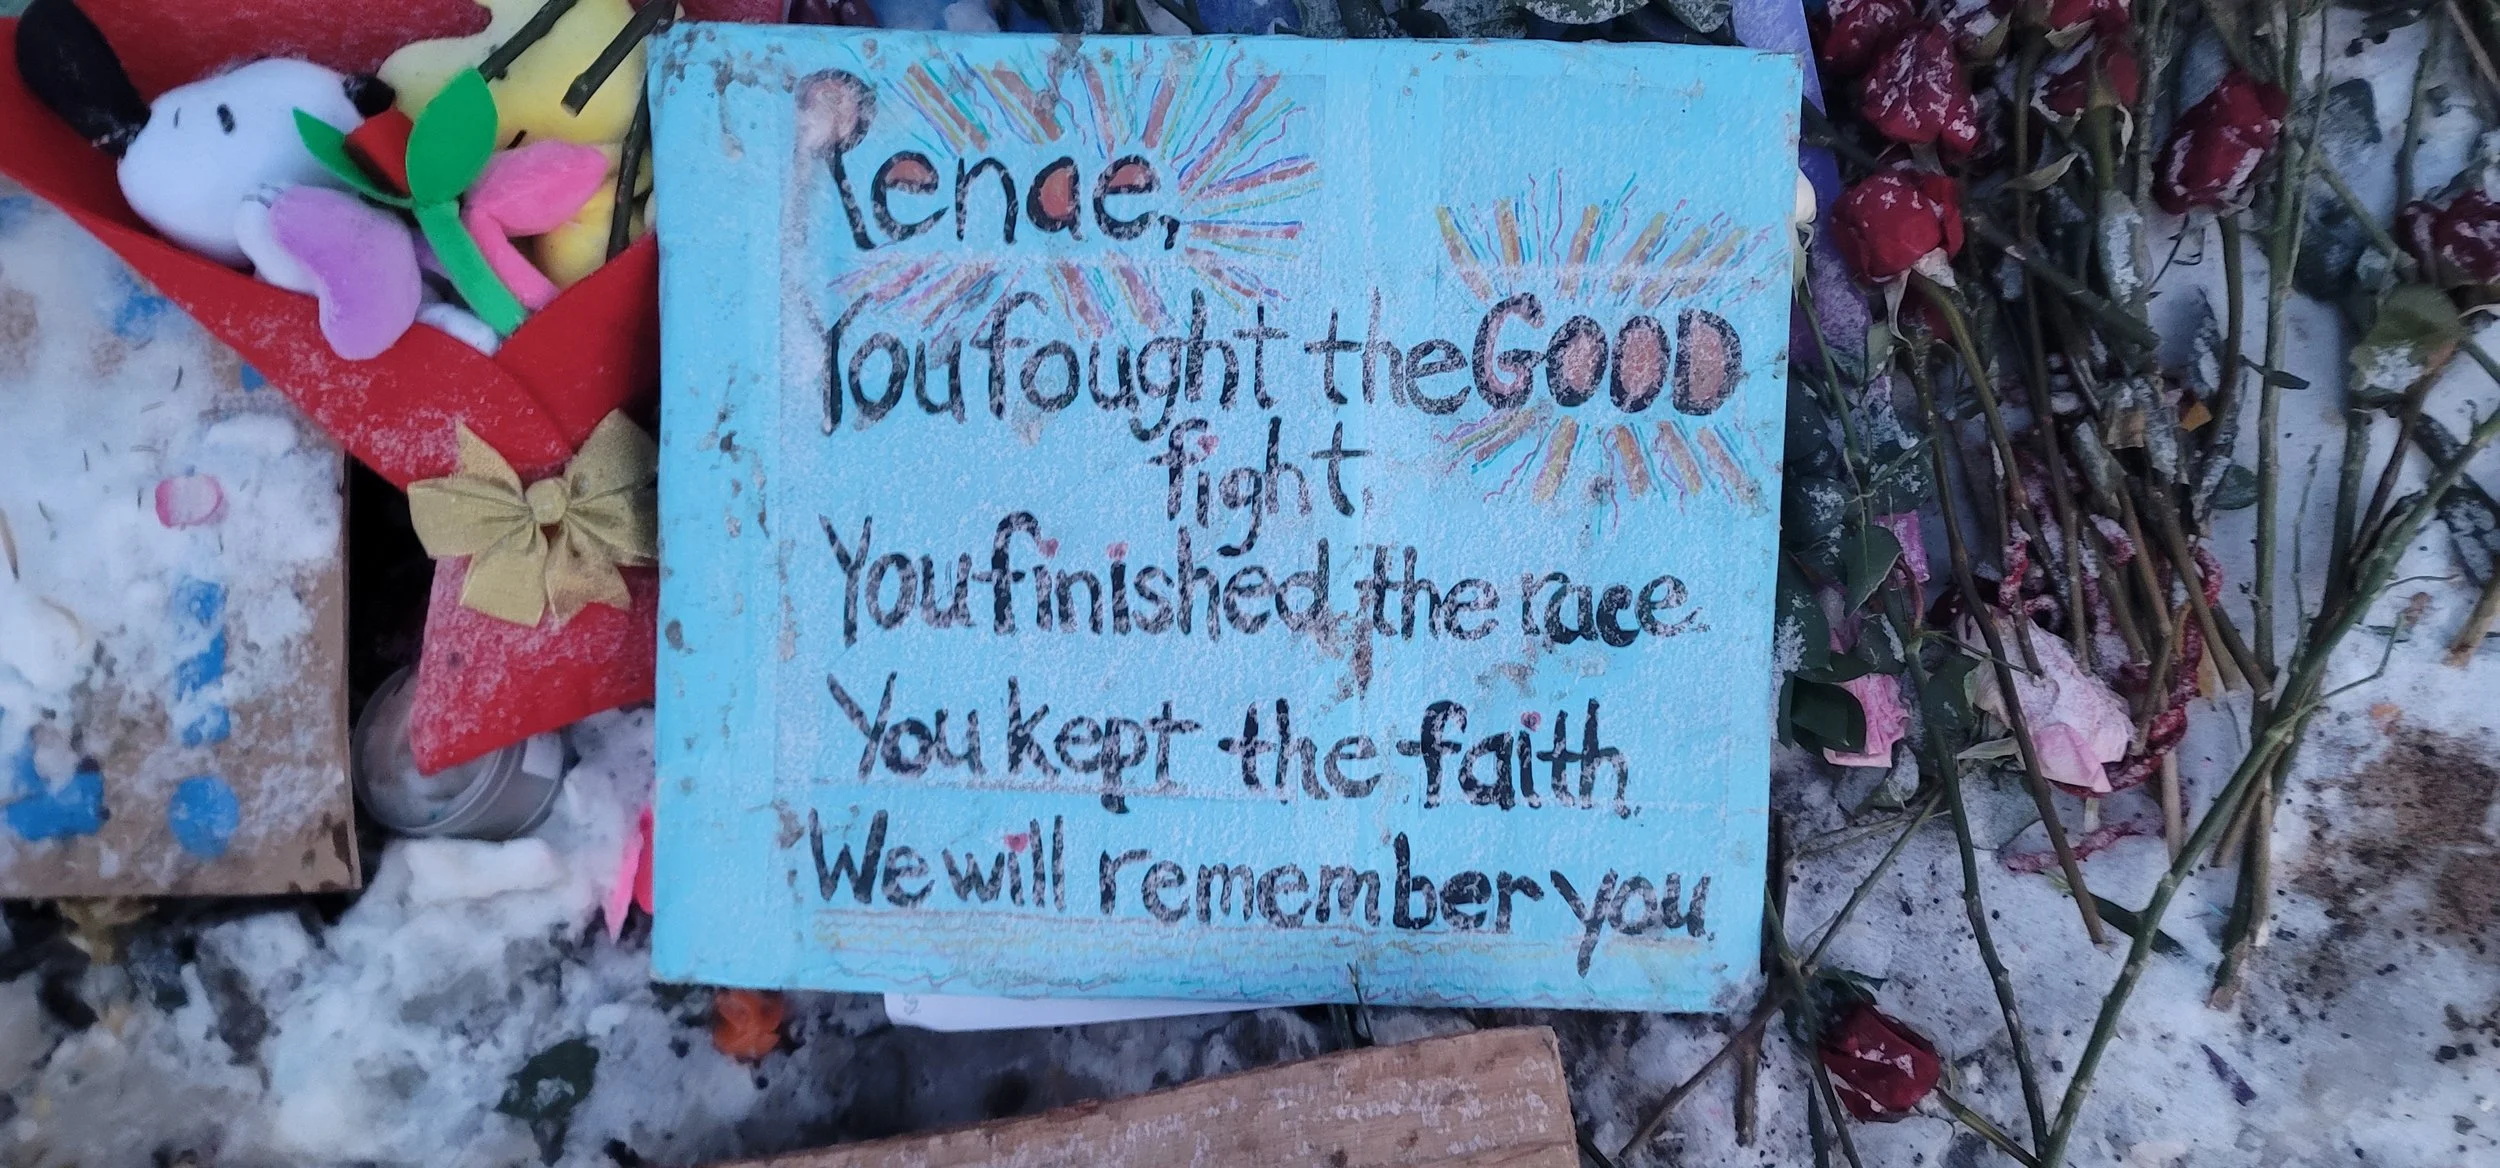 Renae,
You fought the GOOD
fight,
You finished, the race
You kept the faith
We will remember you